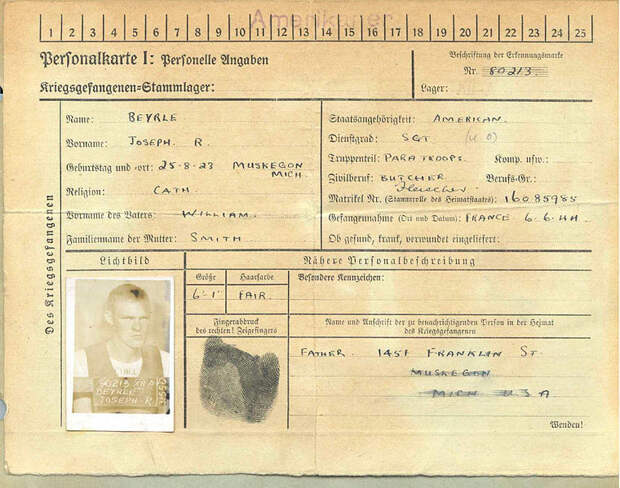 Amerikaner
1 2 3 4 5 6 7 8 9 10 11 12 13 14 15 16 17 18 19 20 21 22 23 24 25
Personalkarte I: Personelle Angaben
Kriegsgefangenen-Stammlager:
Beschriftung der Erkennungsmarke
Nr. 80213
Lager:
Des Kriegsgefangenen
Name: BEYRLE
Vorname: JOSEPH. R.
Geburtstag und -ort: 25-8-23 MUSKEGON
MICH.
Religion: CATH.
Vorname des Vaters: WILLIAM.
Familienname der Mutter: SMITH
Staatsangehörigkeit: AMERICAN.
Dienstgrad: SGT
Truppenteil: PARATROOPS. Komp. usw.:
Zivilberuf: BUTCHER Berufs-Gr.:
Fleischer
Matrikel Nr. (Stammrolle des Heimatstaates) 16085985
Gefangennahme (Ort und Datum): FRANCE 6.6.44.
Ob gesund, krank, verwundet eingeliefert:
Lichtbild
Nähere Personalbeschreibung
Größe
Haarfarbe
6'-1" FAIR.
Besondere Kennzeichen:
Fingerabdruck
des rechten! Zeigefingers
Name und Anschrift der zu benachrichtigenden Person in der Heimat
des Kriegsgefangenen
FATHER. 1451 FRANKLIN ST.
MUSKEGON
MICH U S A
80213 XII A
BEYRLE
JOSEPH R.
Wenden!